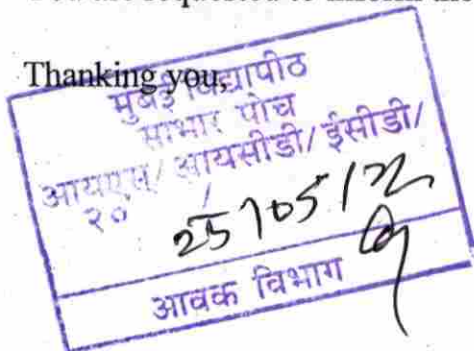 Thanking you,
मुंबई विद्यापीठ
साभार पोच
आयएस/ आयसीडी/ ईसीडी/
२०
25/05/22
आवक विभाग